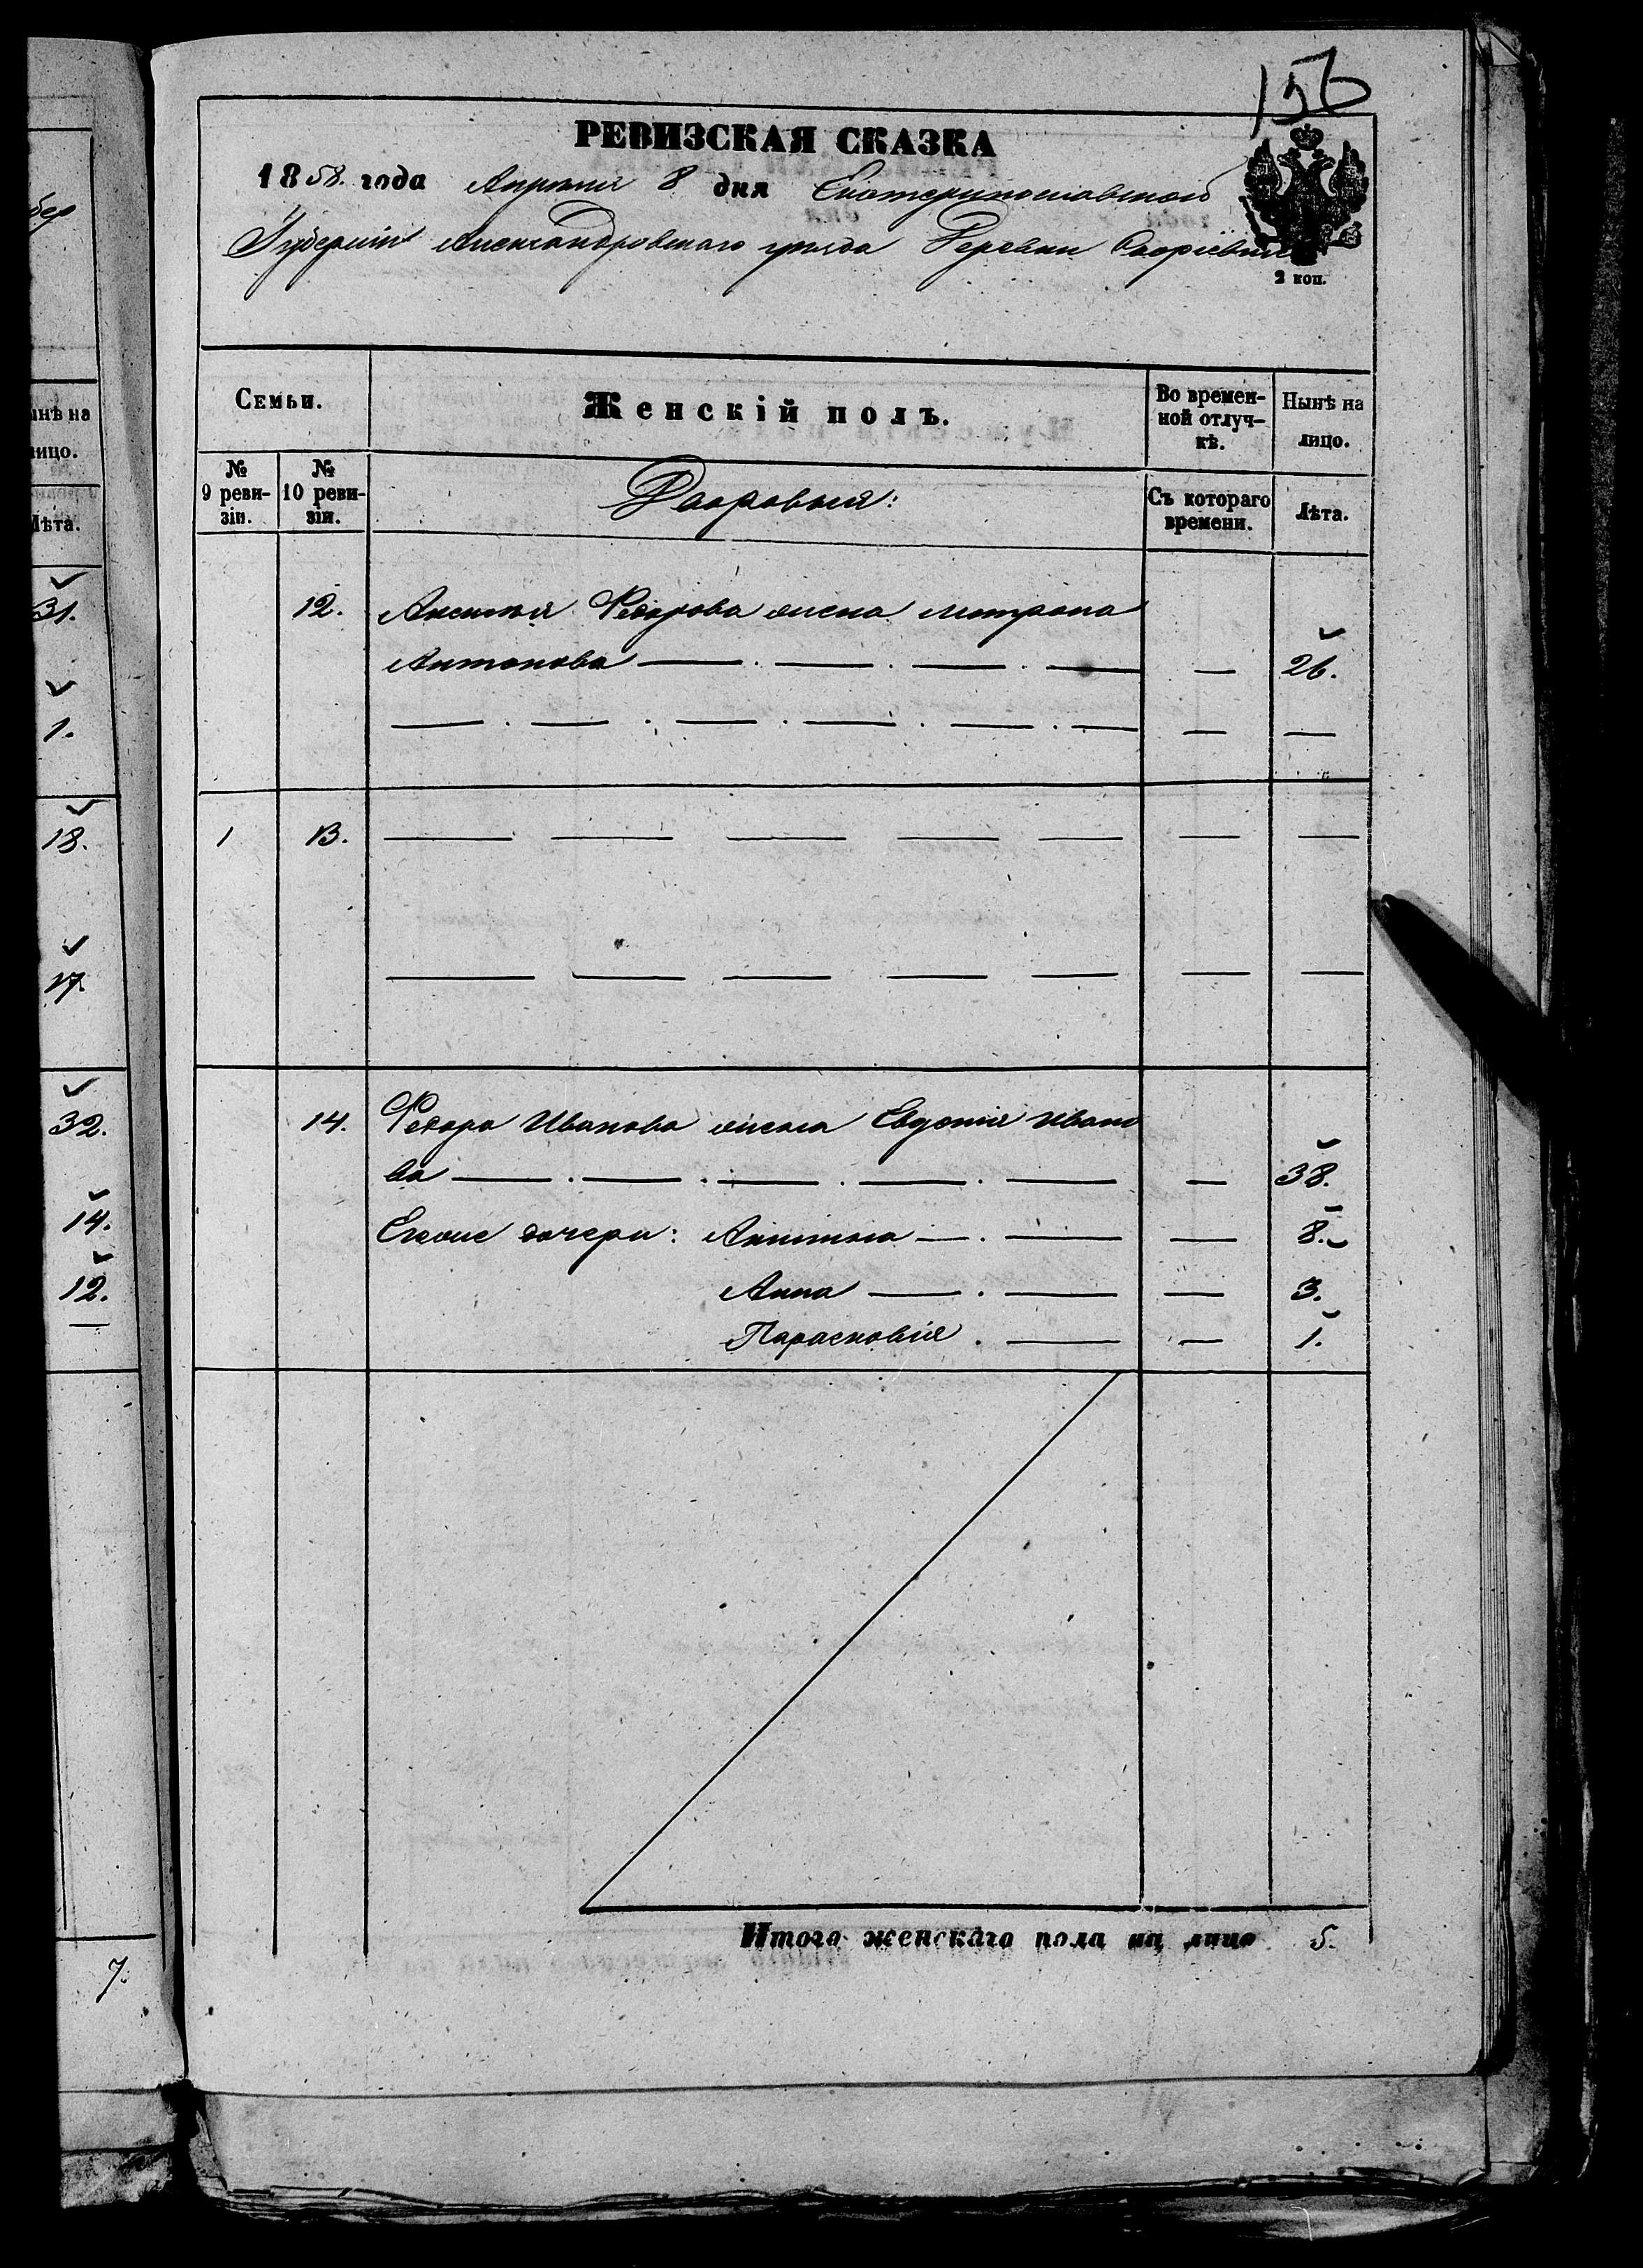 156
РЕВИЗСКАЯ СКАЗКА
1858. года Апрѣля 8 дня Екатеринославской
Губерніи Александровскаго уѣзда Деревни
2 коп.
Семьи.
Женскій полъ.
Во времен-
ной отлуч-
кѣ.
Нынѣ на
лицо.
№
9 реви-
зіи.
№
10 реви-
зіи.
Дворовыя:
Съ котораго
времени.
Лѣта.
12. Федорова жена Митрофа
Антонова — . — . — . — — 26.
— . — . — . — . — . — — —
1 13. — — — — — — —
— — — — — — —
14. Федора Иванова жена Ивано
ва — . — . — . — . — — 38.
Егоже дочери: — . — — 8.
Анна — . — — 3.
Парасковія . — — 1.
Итого женскаго пола на лицо 5.
бер
ынѣ на
лицо.
Лѣта.
31.
1.
18.
17.
32.
14.
12.
7.